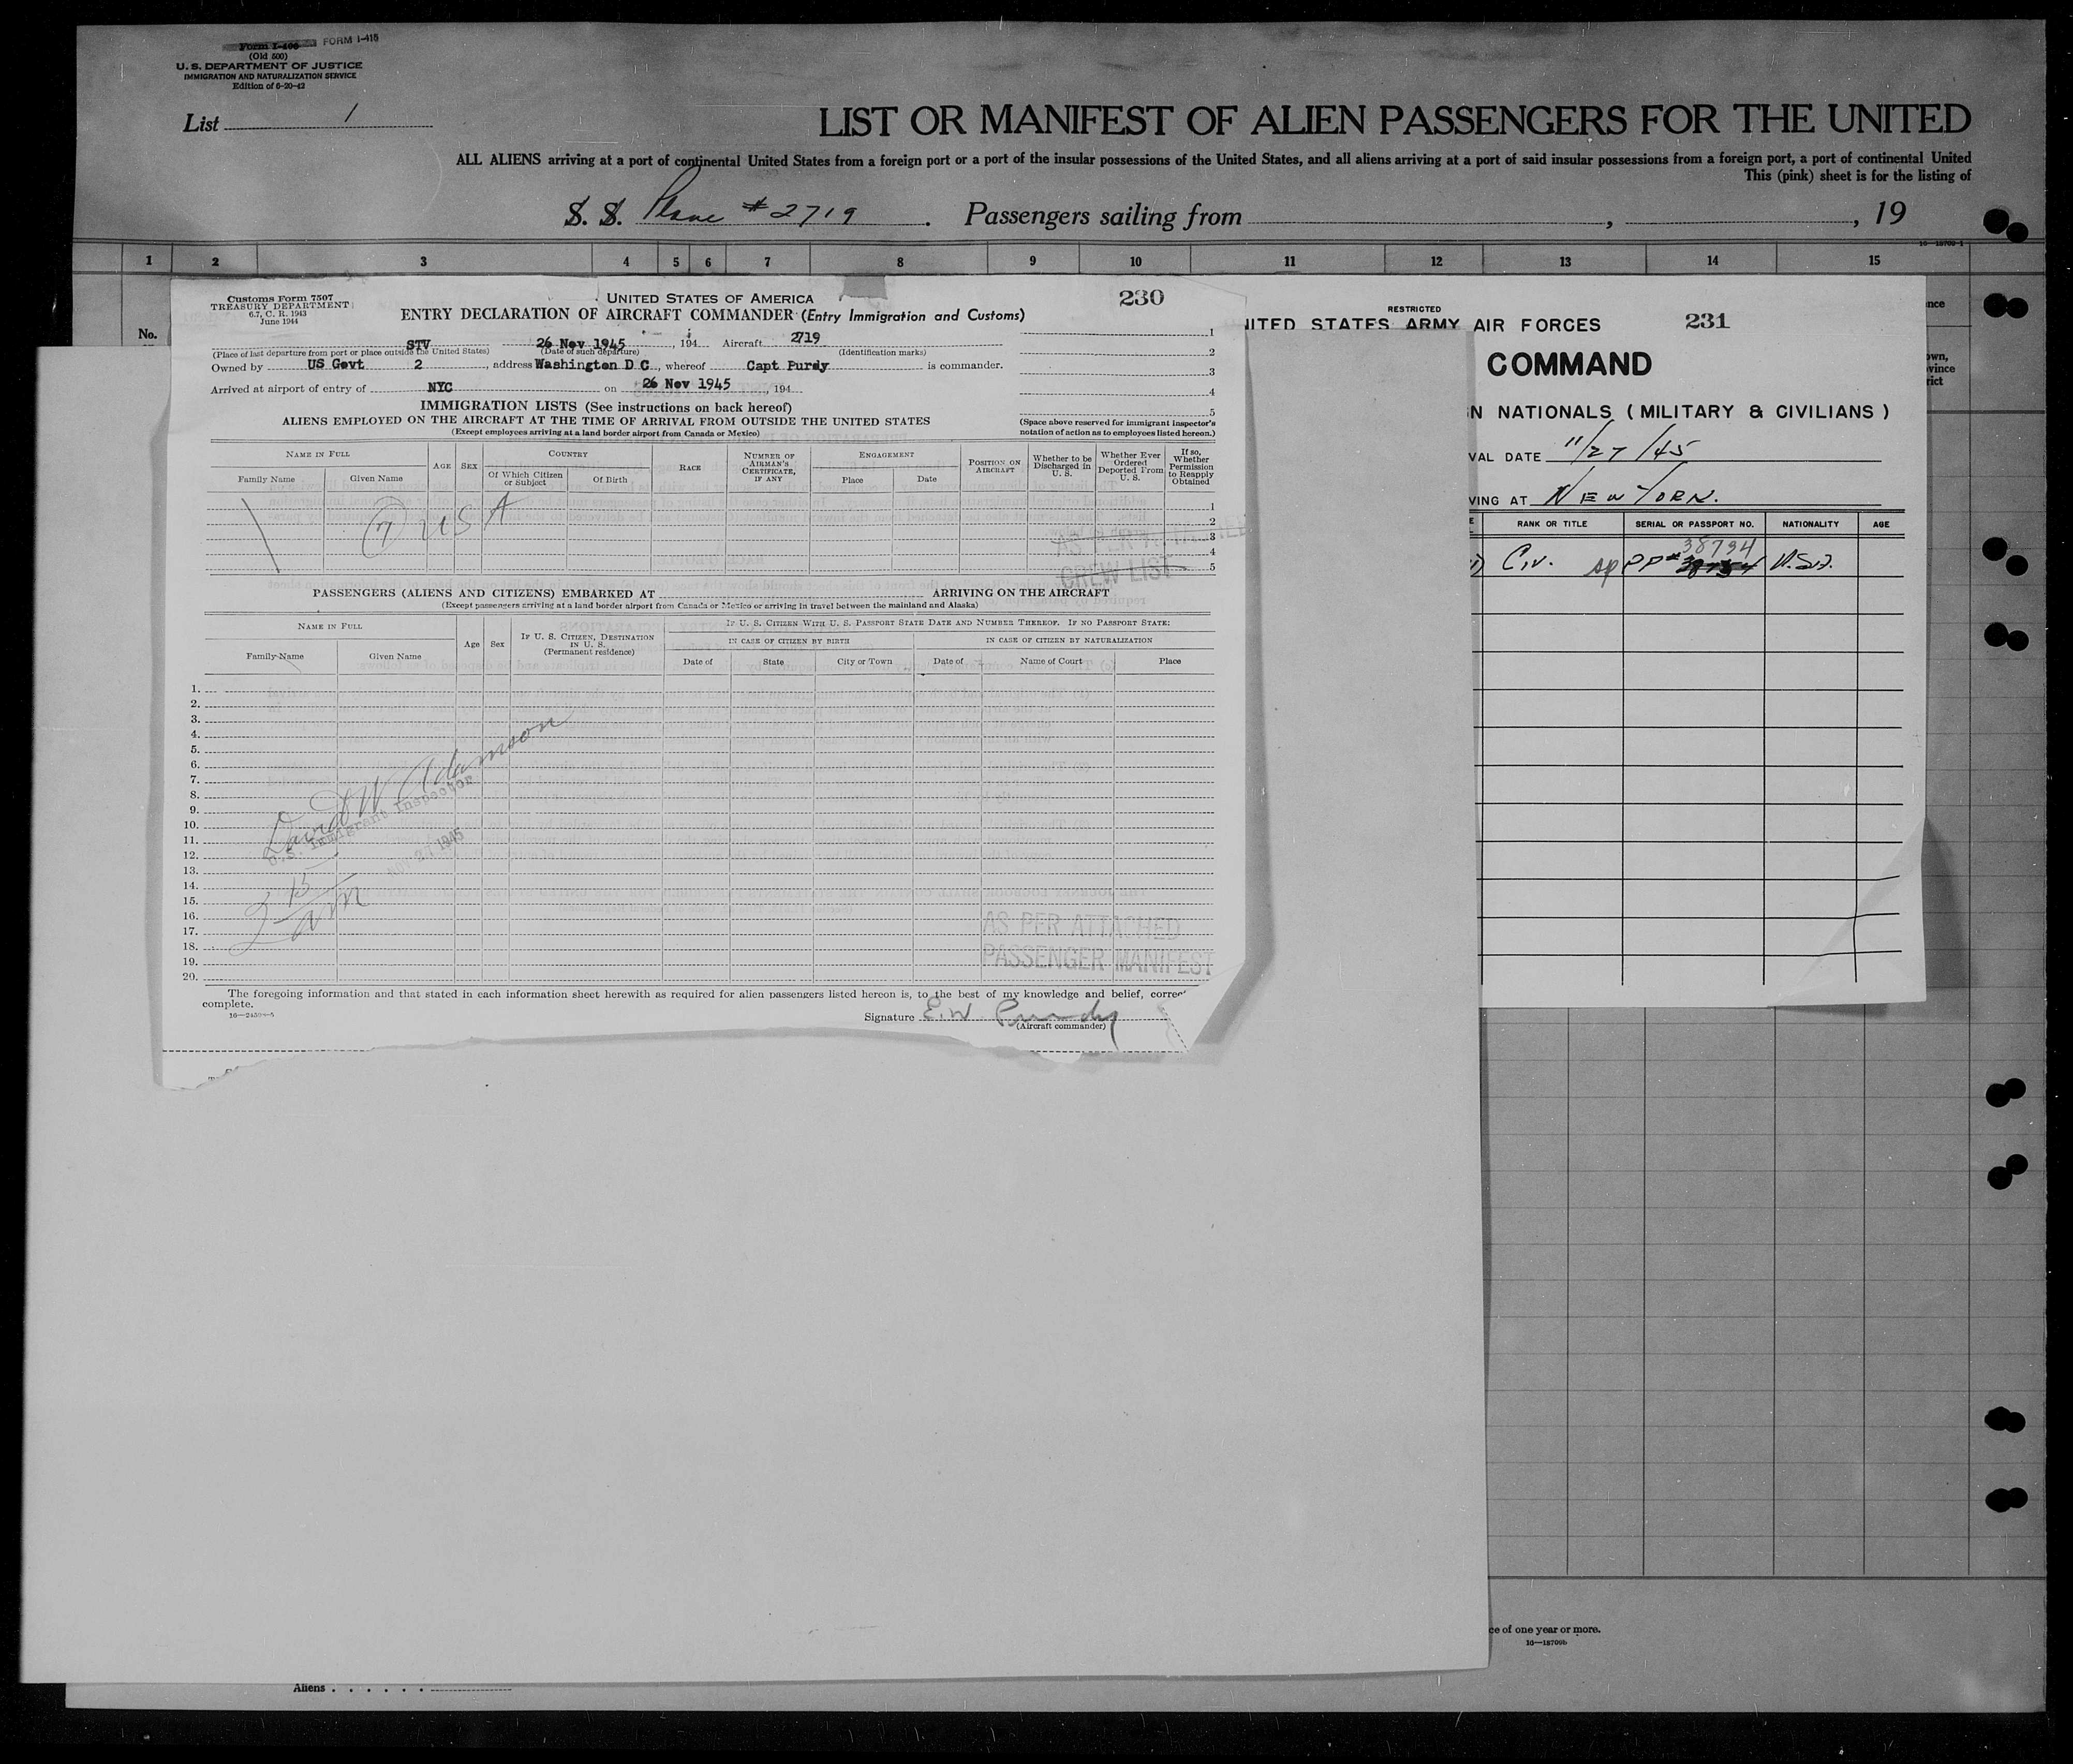 Form I-400 FORM I-415
(Old 500)
U. S. DEPARTMENT OF JUSTICE
IMMIGRATION AND NATURALIZATION SERVICE
Edition of 6-20-42
List 1
LIST OR MANIFEST OF ALIEN PASSENGERS FOR THE UNITED
ALL ALIENS arriving at a port of continental United States from a foreign port or a port of the insular possessions of the United States, and all aliens arriving at a port of said insular possessions from a foreign port, a port of continental United
This (pink) sheet is for the listing of
S. S. Plane #2719. Passengers sailing from , , 19
1 2 3 4 5 6 7 8 9 10 11 12 13 14 15
No.
Customs Form 7507
TREASURY DEPARTMENT
6.7, C. R. 1943
June 1944
UNITED STATES OF AMERICA
230
ENTRY DECLARATION OF AIRCRAFT COMMANDER (Entry Immigration and Customs)
STV 26 Nov 1945, 194 Aircraft 2719
(Place of last departure from port or place outside the United States) (Date of such departure) (Identification marks)
Owned by US Govt 2, address Washington D C, whereof Capt Purdy is commander.
Arrived at airport of entry of NYC on 26 Nov 1945, 194
1
2
3
4
5
IMMIGRATION LISTS (See instructions on back hereof)
ALIENS EMPLOYED ON THE AIRCRAFT AT THE TIME OF ARRIVAL FROM OUTSIDE THE UNITED STATES
(Except employees arriving at a land border airport from Canada or Mexico)
(Space above reserved for immigrant inspector's
notation of action as to employees listed hereon.)
NAME IN FULL
Family Name Given Name
AGE SEX
COUNTRY
Of Which Citizen or Subject Of Birth
RACE
NUMBER OF AIRMAN'S CERTIFICATE, IF ANY
ENGAGEMENT
Place Date
POSITION ON AIRCRAFT
Whether to be Discharged in U. S.
Whether Ever Ordered Deported From U. S.
If so, Whether Permission to Reapply Obtained
7 USA
1
2
3
4
5
AS PER ATTACHED
CREW LIST
PASSENGERS (ALIENS AND CITIZENS) EMBARKED AT ARRIVING ON THE AIRCRAFT
(Except passengers arriving at a land border airport from Canada or Mexico or arriving in travel between the mainland and Alaska)
NAME IN FULL
Family Name Given Name
Age Sex
IF U. S. CITIZEN, DESTINATION IN U. S.
(Permanent residence)
IF U. S. CITIZEN WITH U. S. PASSPORT STATE DATE AND NUMBER THEREOF. IF NO PASSPORT STATE:
IN CASE OF CITIZEN BY BIRTH IN CASE OF CITIZEN BY NATURALIZATION
Date of State City or Town Date of Name of Court Place
1.
2.
3.
4.
5.
6.
7.
8.
9.
10.
11.
12.
13.
14.
15.
16.
17.
18.
19.
20.
David W Adamson
U.S. Immigrant Inspector
NOV 27 1945
3 15 am
AS PER ATTACHED
PASSENGER MANIFEST
The foregoing information and that stated in each information sheet herewith as required for alien passengers listed hereon is, to the best of my knowledge and belief, correct
complete.
Signature E. W Purdy
(Aircraft commander)
RESTRICTED
NITED STATES ARMY AIR FORCES 231
COMMAND
N NATIONALS (MILITARY & CIVILIANS)
VAL DATE 11/27/45
VING AT NEW YORK.
RANK OR TITLE SERIAL OR PASSPORT NO. NATIONALITY AGE
Civ. sp PP# 38794 U.S.
nce
own,
vince
rict
ce of one year or more.
16—18709b
Aliens